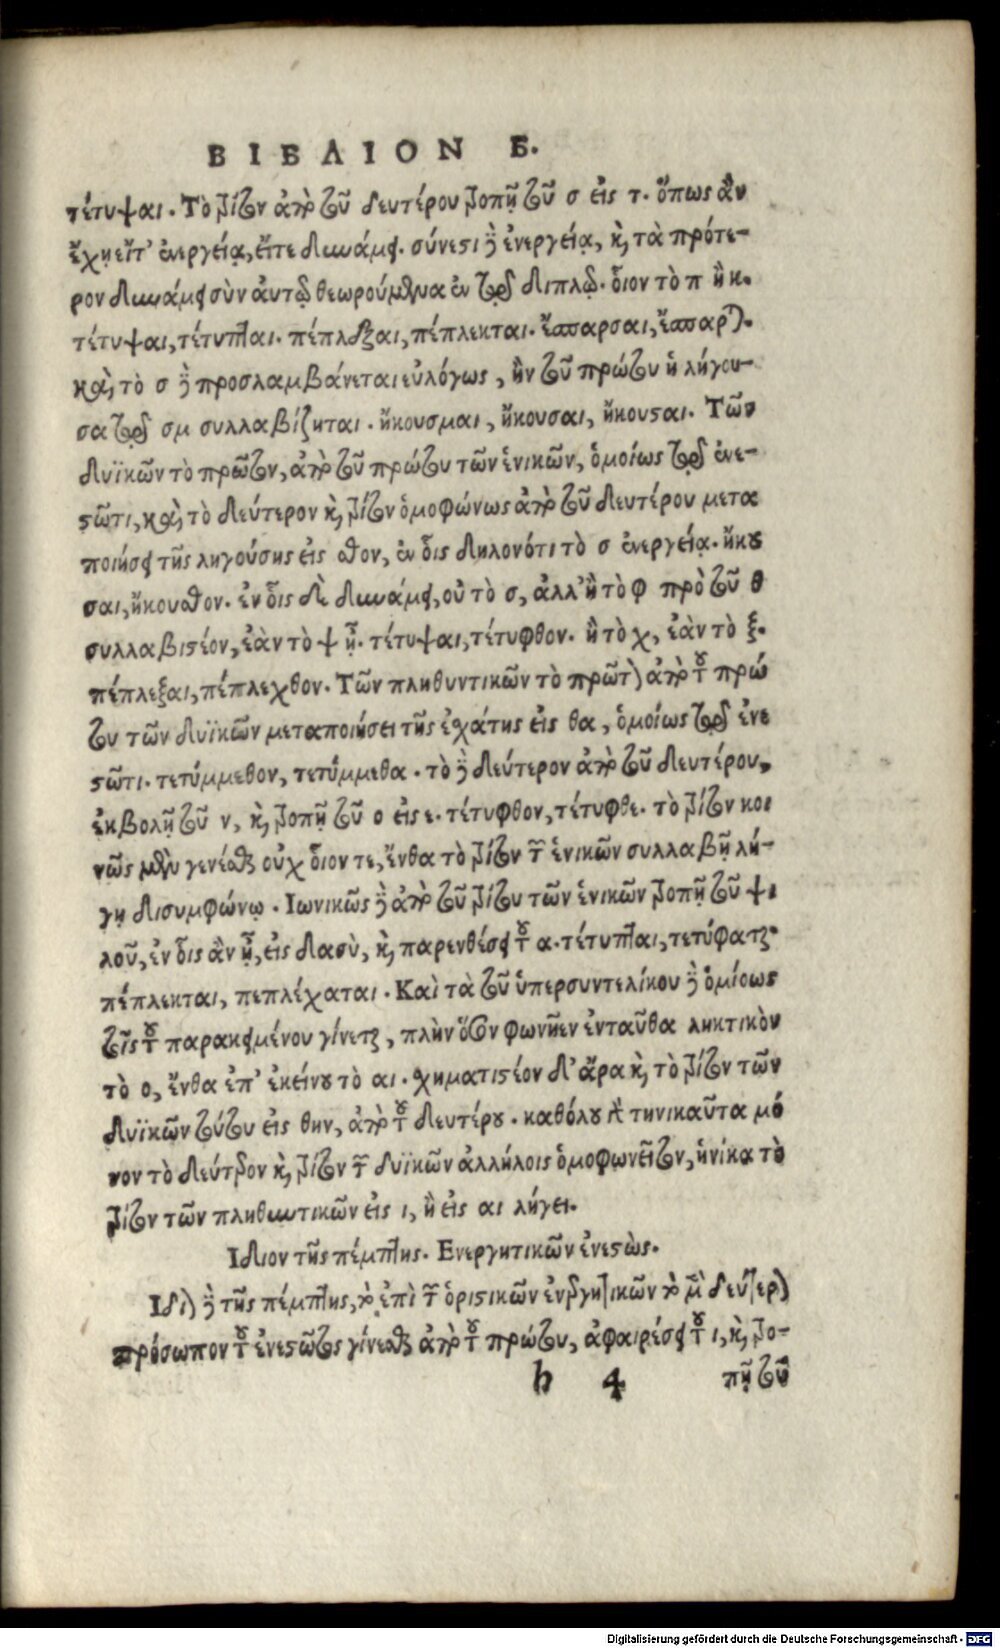 ΒΙΒΛΙΟΝ Β.
τέτυψαι. Τὸ τρίτον ἀπὸ τοῦ δευτέρου τροπῇ τοῦ σ εἰς τ. ὅπως ἂν
ἔχῃ εἴτ' ἐνεργείᾳ, εἴτε δυνάμει. σύνεστι δὲ ἐνεργείᾳ, καὶ τὰ πρότε-
ρον δυνάμει σὺν αὐτῷ θεωρούμενα ἐν τῷ διπλῷ. οἷον τὸ π ἢ κ.
τέτυψαι, τέτυπται. πέπλεξαι, πέπλεκται. ἔσπαρσαι, ἔσπαρται.
καὶ τὸ σ δὲ προσλαμβάνεται εὐλόγως, ἢν τοῦ πρώτου ἡ λήγου-
σα τῷ σμ συλλαβίζηται. ἤκουσμαι, ἤκουσαι, ἤκουσται. Τῶν
δυϊκῶν τὸ πρῶτον, ἀπὸ τοῦ πρώτου τῶν ἑνικῶν, ὁμοίως τῷ ἐνε-
στῶτι, καὶ τὸ δεύτερον καὶ τρίτον ὁμοφώνως ἀπὸ τοῦ δευτέρου μετα
ποιήσει τῆς ληγούσης εἰς σθον, ἐν οἷς δηλονότι τὸ σ ἐνεργείᾳ. ἤκου
σαι, ἤκουσθον. ἐν οἷς δὲ δυνάμει, οὐ τὸ σ, ἀλλ' ἢ τὸ φ πρὸ τοῦ θ
συλλαβιστέον, ἐὰν τὸ ψ ᾖ. τέτυψαι, τέτυφθον. ἢ τὸ χ, ἐὰν τὸ ξ.
πέπλεξαι, πέπλεχθον. Τῶν πληθυντικῶν τὸ πρῶτον ἀπὸ τοῦ πρώ
του τῶν δυϊκῶν μεταποιήσει τῆς ἐσχάτης εἰς θα, ὁμοίως τῷ ἐνε
στῶτι. τετύμμεθον, τετύμμεθα. τὸ δὲ δεύτερον ἀπὸ τοῦ δευτέρου,
ἐκβολῇ τοῦ ν, καὶ τροπῇ τοῦ ο εἰς ε. τέτυφθον, τέτυφθε. τὸ τρίτον κοι
νῶς μὲν γενέσθαι οὐχ οἷόν τε, ἔνθα τὸ τρίτον τῶν ἑνικῶν συλλαβῇ λή-
γῃ δισυμφώνῳ. Ιωνικῶς δὲ ἀπὸ τοῦ τρίτου τῶν ἑνικῶν τροπῇ τοῦ ψι
λοῦ, ἐν οἷς ἂν ᾖ, εἰς δασὺ, καὶ παρενθέσει τοῦ α. τέτυπται, τετύφαται.
πέπλεκται, πεπλέχαται. Καὶ τὰ τοῦ ὑπερσυντελίκου δὲ ὁμοίως
τοῖς τοῦ παρακειμένου γίνεται, πλὴν ὅσον φωνῆεν ἐνταῦθα ληκτικὸν
τὸ ο, ἔνθα ἐπ' ἐκείνου τὸ αι. σχηματιστέον δ' ἄρα καὶ τὸ τρίτον τῶν
δυϊκῶν τούτου εἰς θην, ἀπὸ τοῦ δευτέρου. καθόλου γὰρ τηνικαῦτα μό
νον τὸ δεύτερον καὶ τρίτον τῶν δυϊκῶν ἀλλήλοις ὁμοφωνεῖτον, ἡνίκα τὸ
τρίτον τῶν πληθυντικῶν εἰς ι, ἢ εἰς αι λήγει.
Ιδιον τῆς πέμπτης. Ενεργητικῶν ἐνεστὼς.
Ιδιον δὲ τῆς πέμπτης, καὶ ἐπὶ τῶν ὁριστικῶν ἐνεργητικῶν καὶ μὲν δεύτερον
πρόσωπον τοῦ ἐνεστῶτος γίνεσθαι ἀπὸ τοῦ πρώτου, ἀφαιρέσει τοῦ ι, καὶ τρο-
h 4 πῇ τοῦ
Digitalisierung gefördert durch die Deutsche Forschungsgemeinschaft - DFG